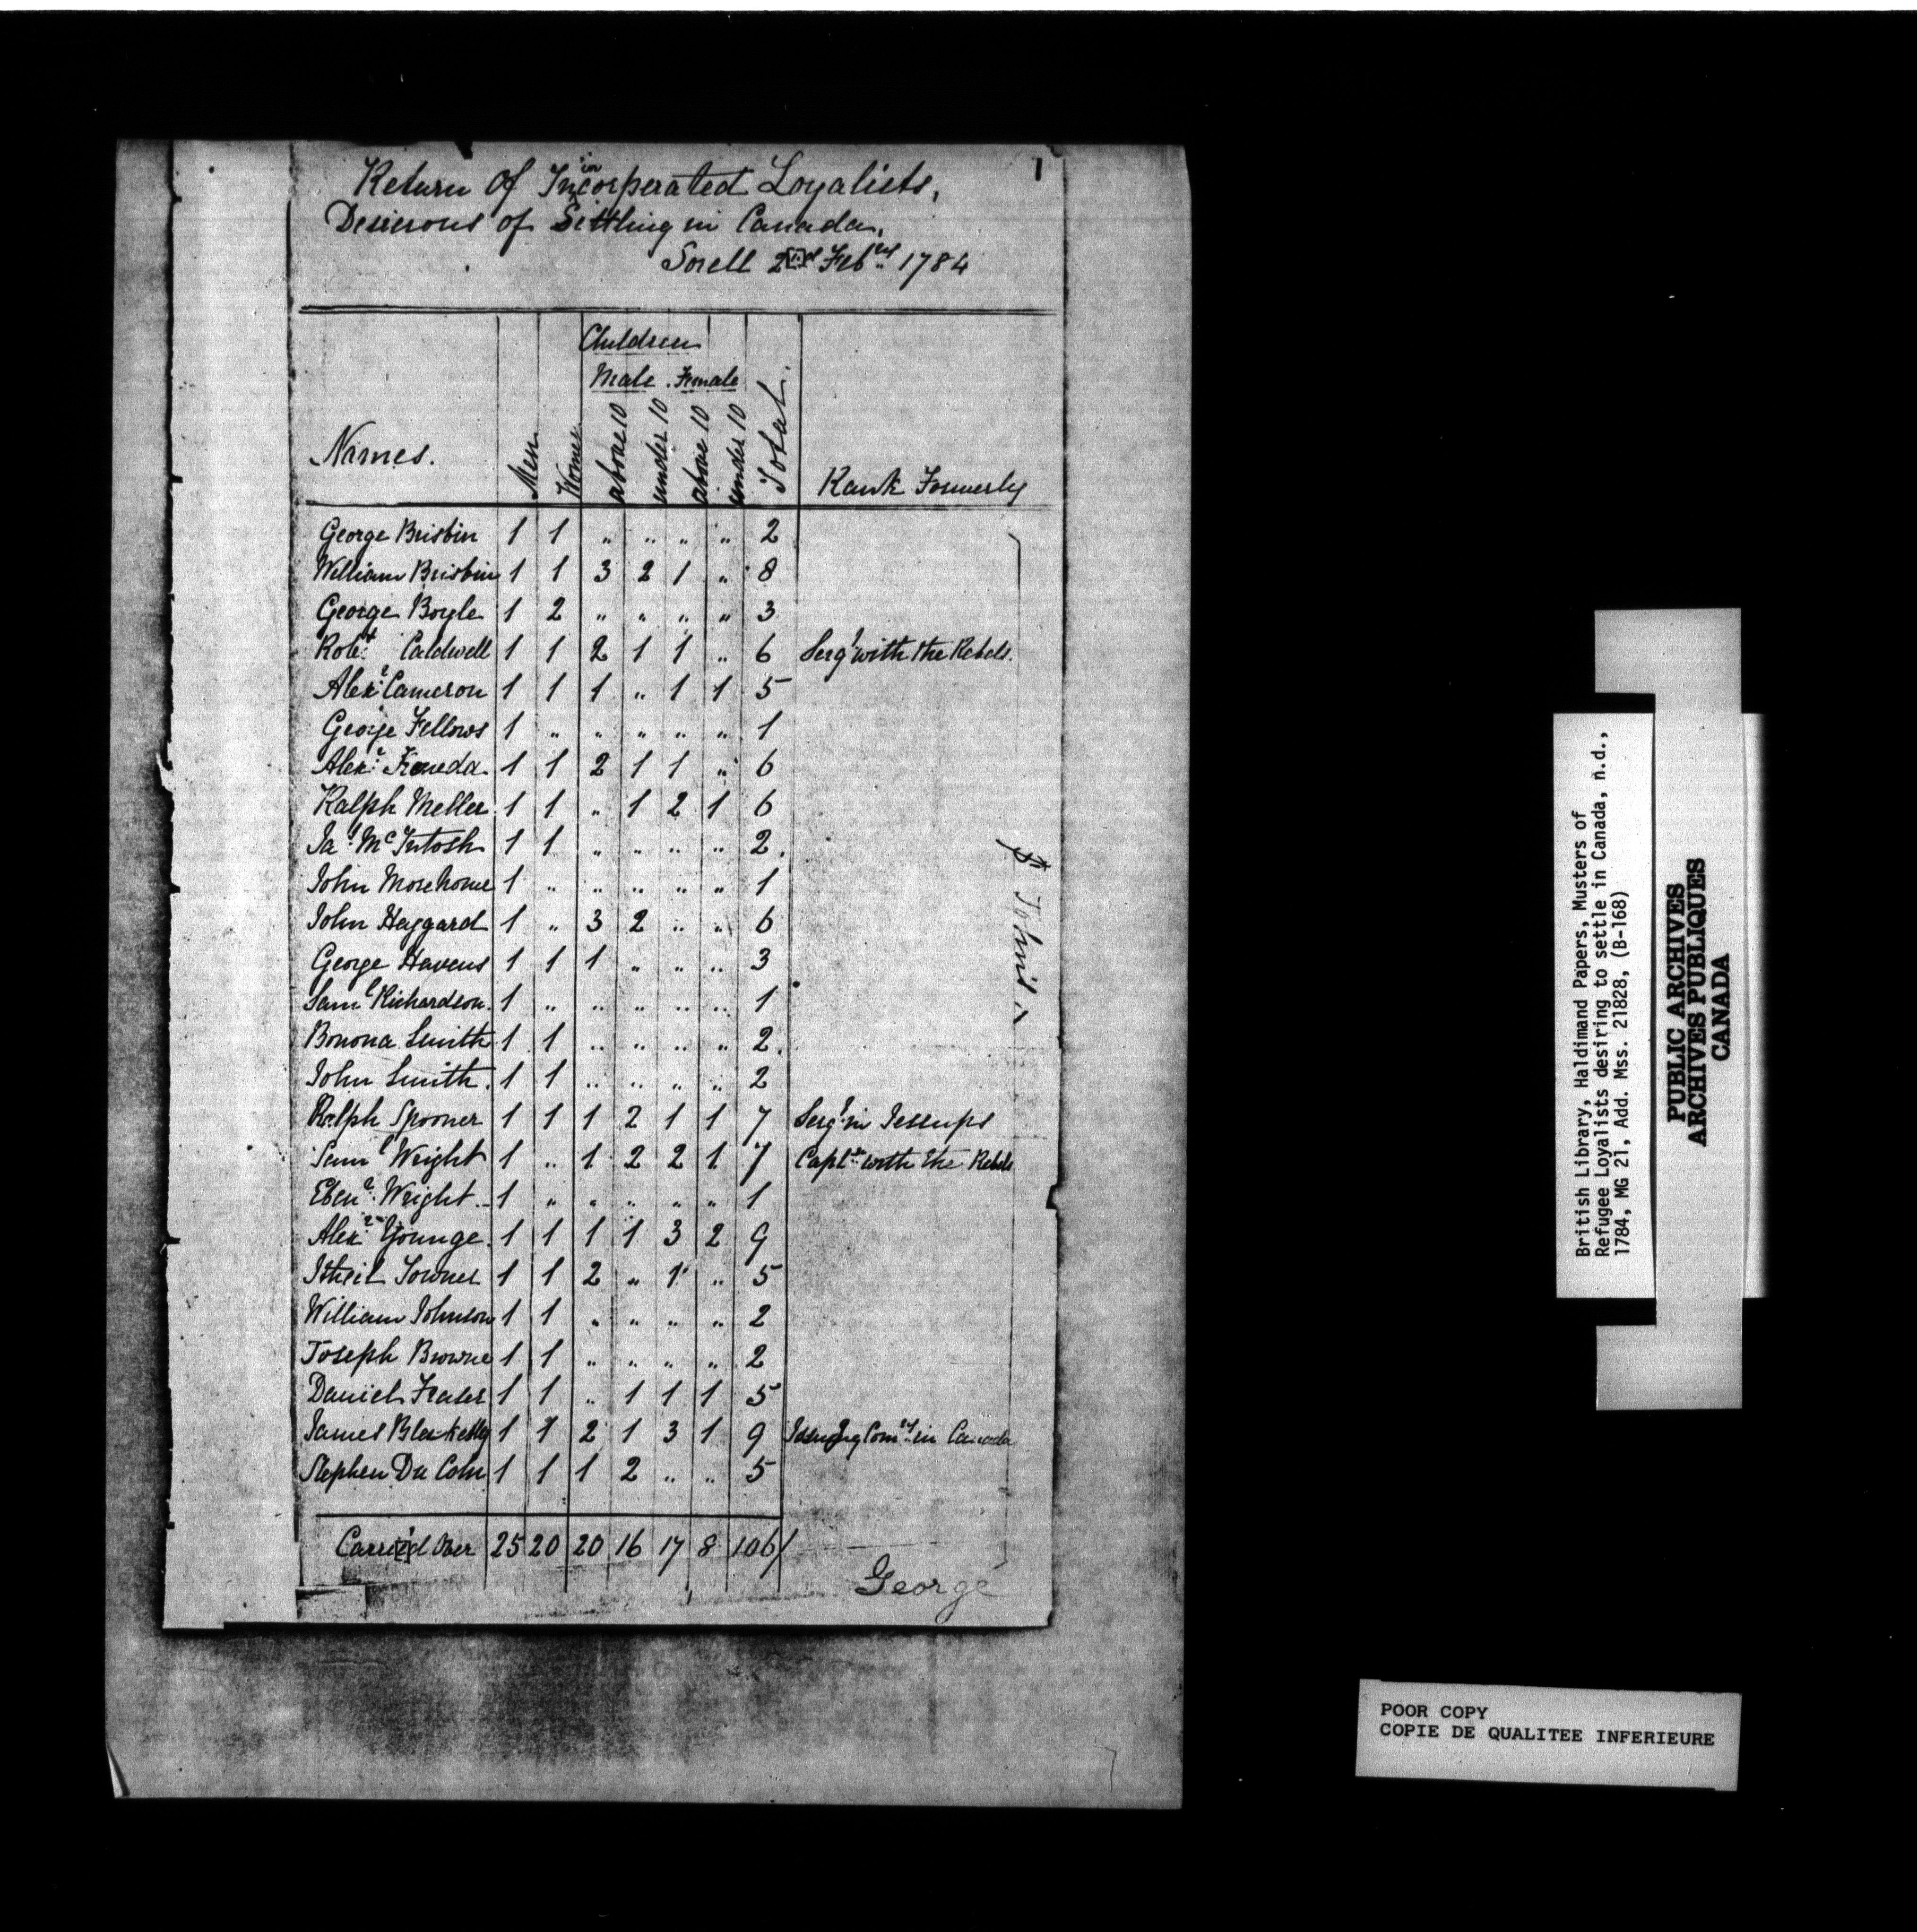 1
Return of In^in corperated Loyalists,
Desierous of Settling in Canada,
Sorell 2nd Feb^ry 1784
Children
Male . Female
Names. Men Women above 10 under 10 above 10 under 10 Total. Rank Formerly
George Brisbin 1 1 " " " " 2
William Brisbin 1 1 3 2 1 " 8
George Boyle 1 2 " " " " 3
Rob^t Caldwell 1 1 2 1 1 " 6 Serg^t with the Rebels.
Alex^r Cameron 1 1 1 " 1 1 5
George Fellows 1 " " " " " 1
Alex^r 1 1 2 1 1 " 6
Ralph Meller 1 1 " 1 2 1 6
Ja^s M^cIntosh 1 1 " " " " 2.
John Morehouse 1 " " " " " 1
John Haggard 1 " 3 2 " " 6
George Havens 1 1 1 " " " 3
Sam^l Richardson. 1 " " " " " 1
Bonona Smith 1 1 " " " " 2.
John Smith. 1 1 " " " " 2
Ralph Spooner 1 1 1 2 1 1 7 Serg^t in Jessups
Sam^l Wright 1 " 1 2 2 1 7 Capt^n with the Rebels
Eben^r Wright 1 " " " " " 1
Alex^r Younge. 1 1 1 1 3 2 9
Itheil Towner 1 1 2 " 1 " 5
William Johnson 1 1 " " " " 2
Joseph Browne 1 1 " " " " 2
Daniel Fraser 1 1 " 1 1 1 5
James Blakelly 1 1 2 1 3 1 9 Issuing Com^sy in Canada
Stephen De Coln 1 1 1 2 " " 5
Carried Over 25 20 20 16 17 8 106/
George
S^t John's.
British Library, Haldimand Papers, Musters of
Refugee Loyalists desiring to settle in Canada, n.d.,
1784, MG 21, Add. Mss. 21828, (B-168)
PUBLIC ARCHIVES
ARCHIVES PUBLIQUES
CANADA
POOR COPY
COPIE DE QUALITEE INFERIEURE